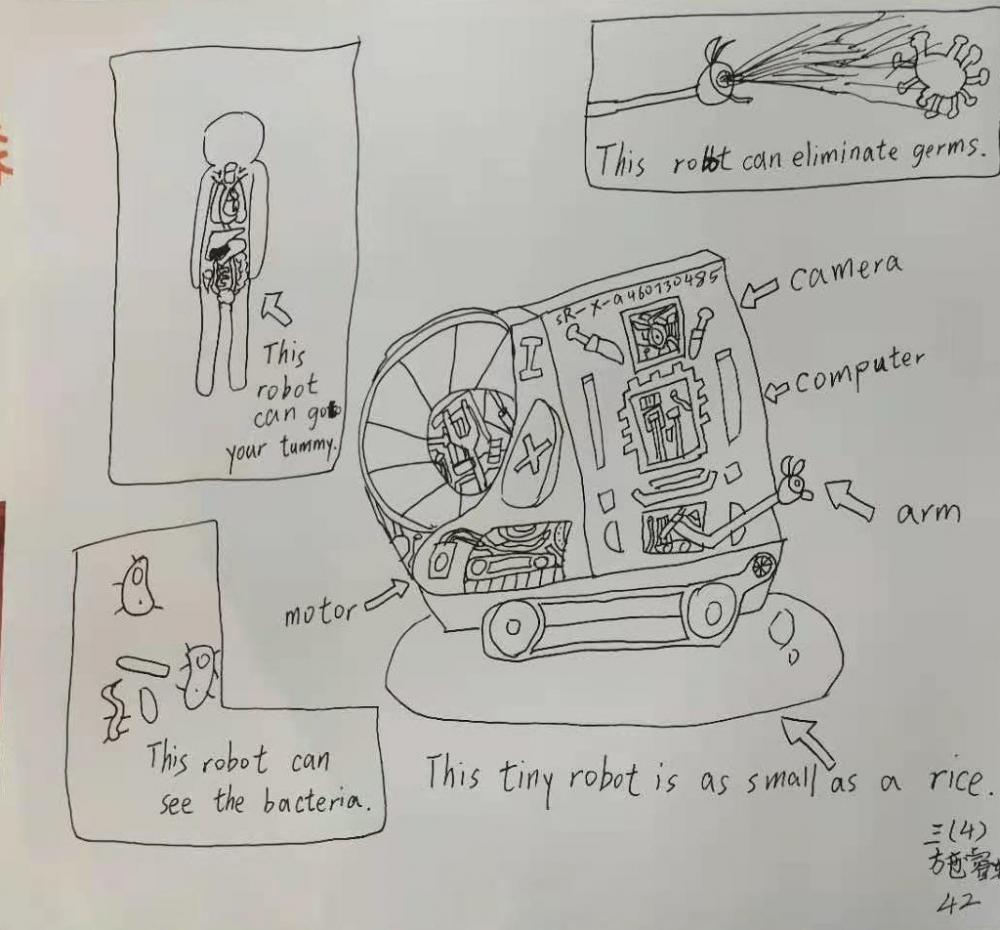 This robot can eliminate germs.
This
robot
can go to
your tummy.
sR-X-a460730485
I
X
camera
computer
arm
motor
This robot can
see the bacteria.
This tiny robot is as small as a rice.
三(4)
方
42